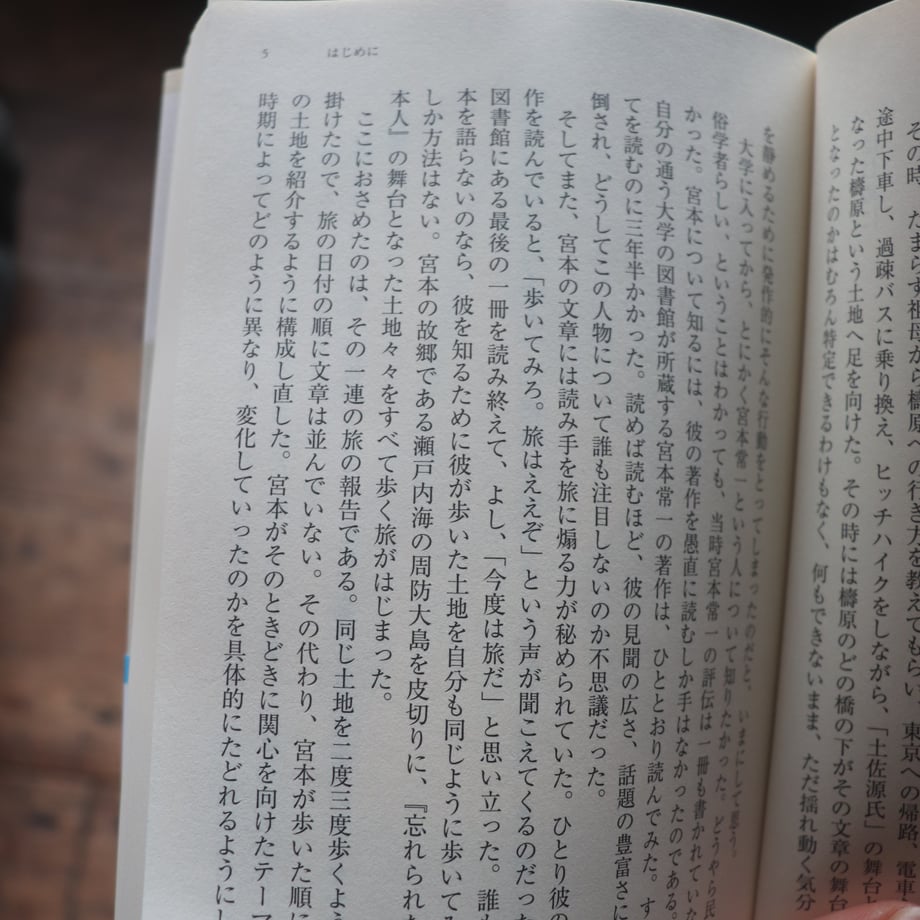 その時、たまらず祖母から檮原への行き方を教えてもらい、東京への帰路、電車
途中下車し、過疎バスに乗り換え、ヒッチハイクをしながら、「土佐源氏」の舞台と
なった檮原という土地へ足を向けた。その時には檮原のどの橋の下がその文章の舞台
となったのかはむろん特定できるわけもなく、何もできないまま、ただ揺れ動く気分
を静めるために発作的にそんな行動をとってしまったのだと、いまにして思う。
大学に入ってから、とにかく宮本常一という人について知りたかった。どうやら民
俗学者らしい、ということはわかっても、当時宮本常一の評伝は一冊も書かれていな
かった。宮本について知るには、彼の著作を愚直に読むしか手はなかったのである。
自分の通う大学の図書館が所蔵する宮本常一の著作は、ひととおり読んでみた。す
てを読むのに三年半かかった。読めば読むほど、彼の見聞の広さ、話題の豊富さに
倒され、どうしてこの人物について誰も注目しないのか不思議だった。
そしてまた、宮本の文章には読み手を旅に煽る力が秘められていた。ひとり彼の
作を読んでいると、「歩いてみろ。旅はええぞ」という声が聞こえてくるのだった
図書館にある最後の一冊を読み終えて、よし、「今度は旅だ」と思い立った。誰も
本を語らないのなら、彼を知るために彼が歩いた土地を自分も同じように歩いてみ
しか方法はない。宮本の故郷である瀬戸内海の周防大島を皮切りに、『忘れられた
本人』の舞台となった土地々々をすべて歩く旅がはじまった。
ここにおさめたのは、その一連の旅の報告である。同じ土地を二度三度歩くよう
掛けたので、旅の日付の順に文章は並んでいない。その代わり、宮本が歩いた順に
の土地を紹介するように構成し直した。宮本がそのときどきに関心を向けたテーマ
時期によってどのように異なり、変化していったのかを具体的にたどれるようにし
5 はじめに